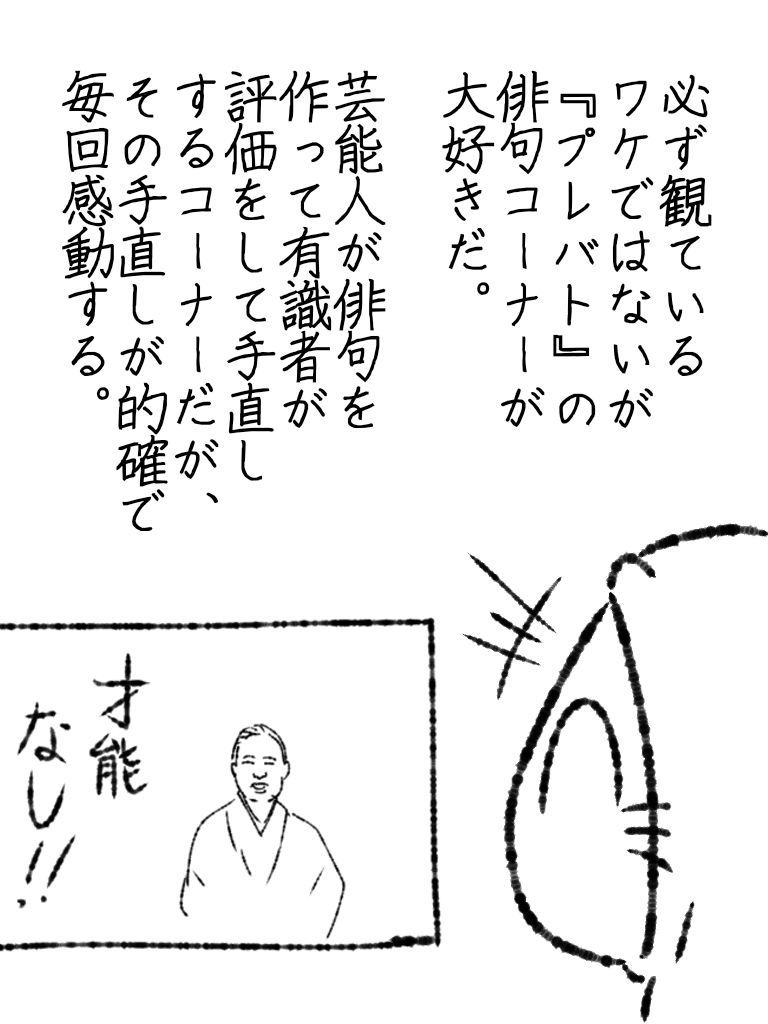 必ず観ている
ワケではないが
『プレバト』の
俳句コーナーが
大好きだ。
芸能人が俳句を
作って有識者が
評価をして手直し
するコーナーだが、
その手直しが的確で
毎回感動する。
才能
なし!!